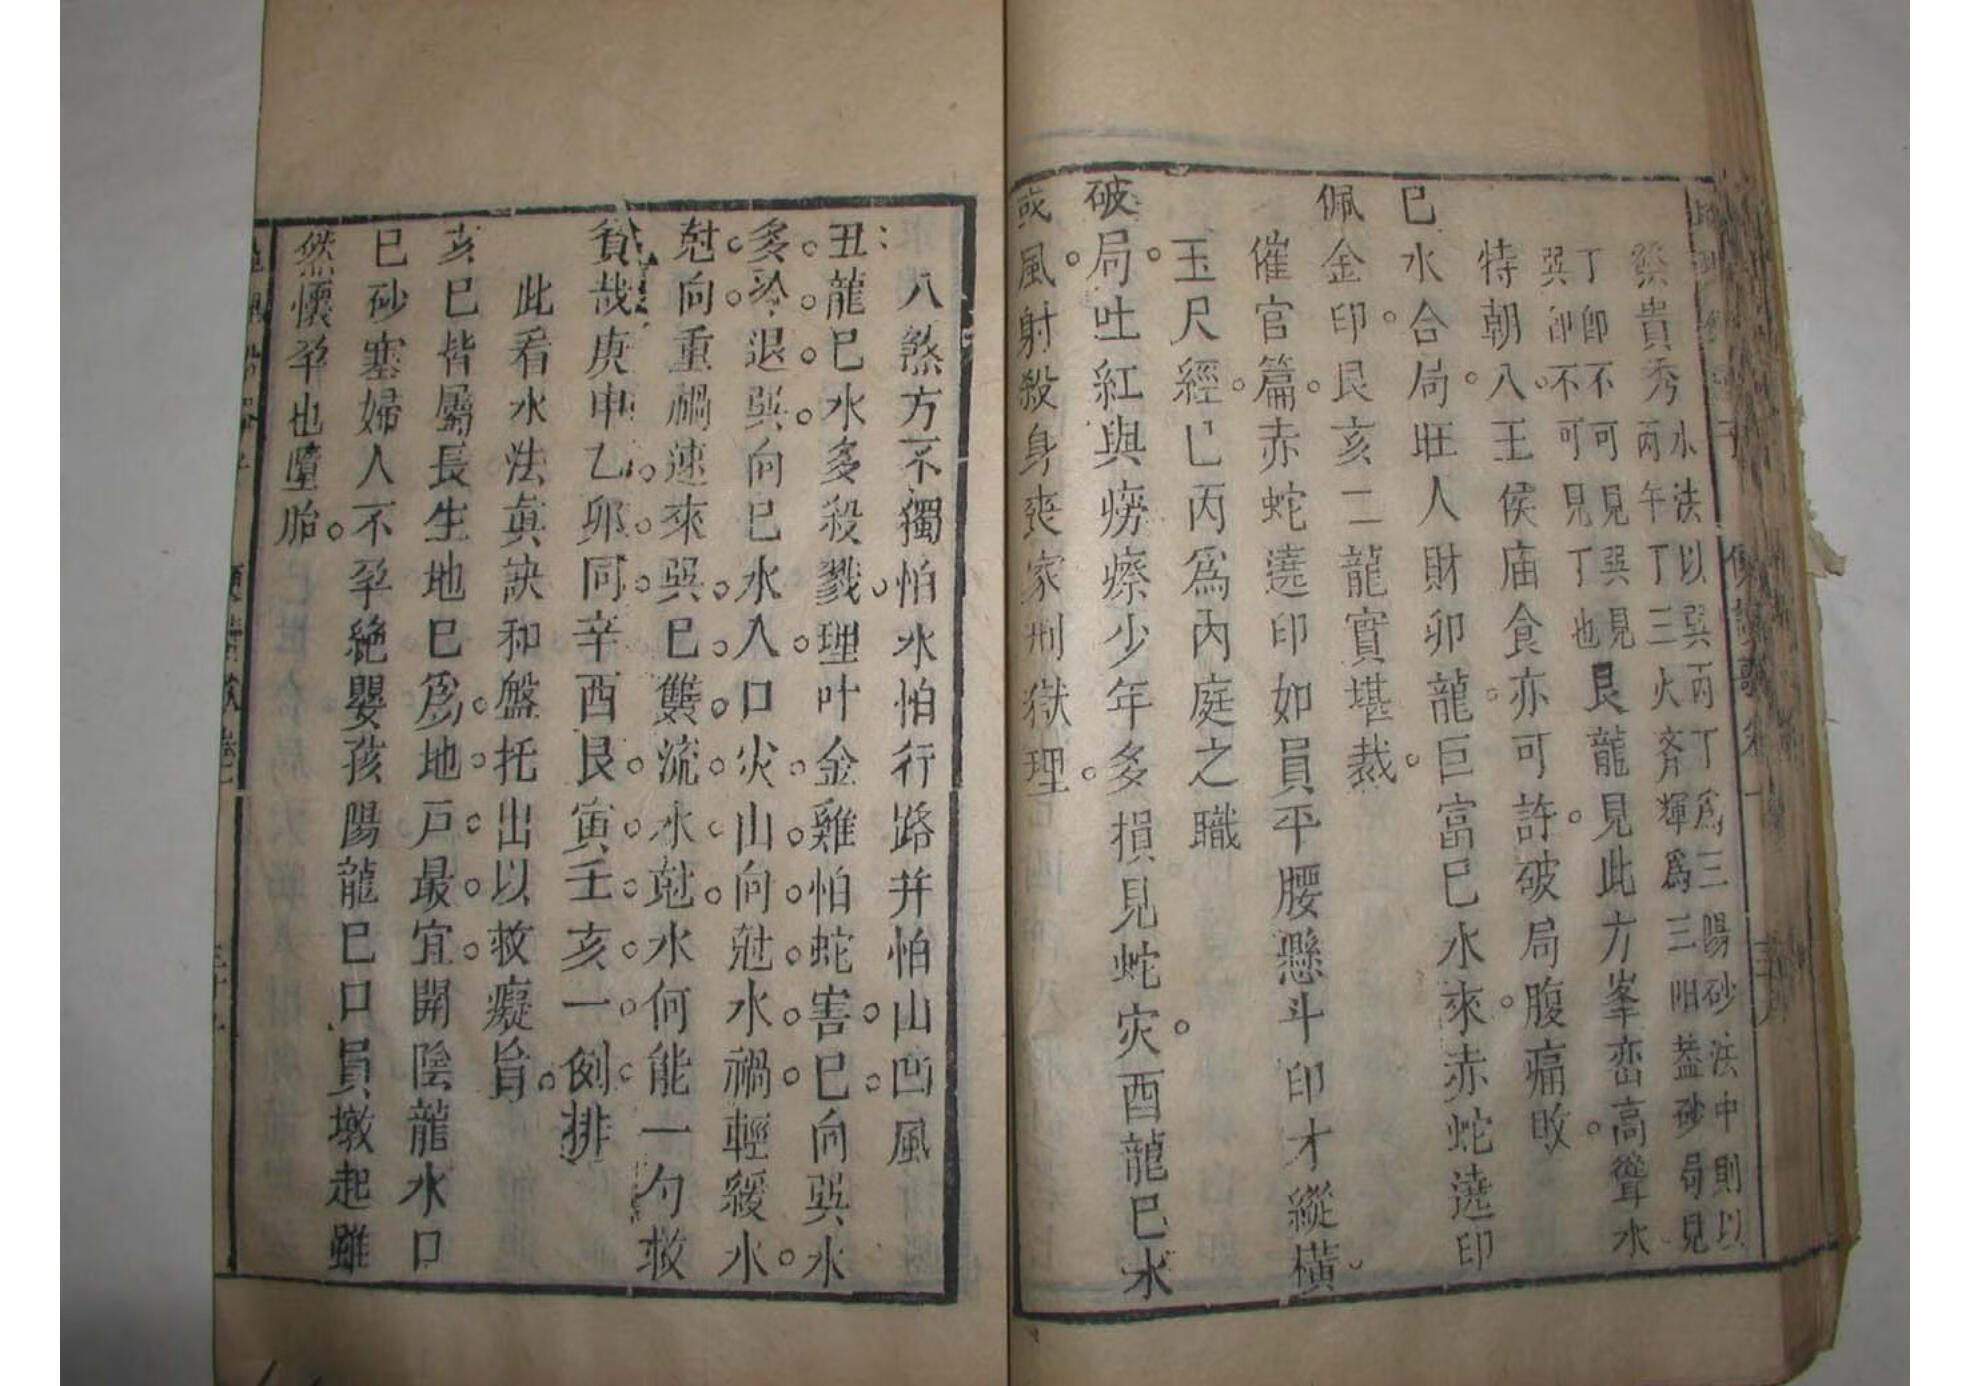 癸貴秀水法以巽丙丁爲三陽砂法中則以
丙午丁三火齊輝爲三阳葢砂局見
丁卽不可見巽見
巽卽不可見丁也艮龍見此方峯巒高聳水
特朝八王侯庙食亦可許破局腹痛敗
巳水合局旺人財卯龍巨富巳水來赤蛇遶印
佩金印艮亥二龍實堪裁
催官篇赤蛇遶印如員平腰懸斗印才縱橫
玉尺經巳丙爲內庭之職
破局吐紅與痨瘵少年多損見蛇灾酉龍巳水
或風射殺身喪家刑獄理
八煞方不獨怕水怕行路并怕山凹風
丑龍巳水多殺戮理叶金雞怕蛇害巳向巽水
多冷退巽向巳水入口火山向尅水禍輕緩水
尅向重禍速來巽巳雙流水尅水何能一勺救
貧哉庚申乙卯同辛酉艮寅壬亥一例排
此看水法眞訣和盤托出以救癡旨
亥巳皆屬長生地巳爲地户最宜開陰龍水口
巳砂塞婦人不孕絶嬰孩陽龍巳口員墩起雖
然懷孕也墮胎